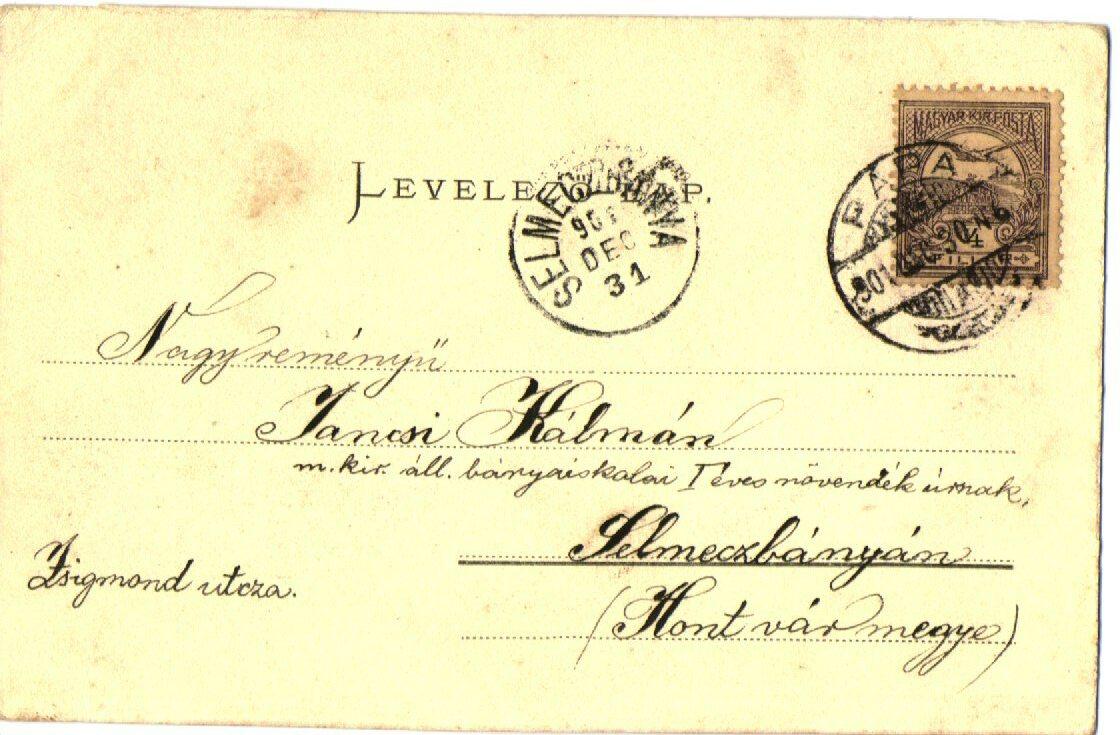 MAGYAR KIR. POSTA
4
FILLÉR
PÁPA
LEVELEZŐ-LAP.
SELMECZBÁNYA
DEC
31
Nagyreményü
Jancsi Kálmán
m. kir. áll. bányaiskolai I éves növendék úrnak,
Selmeczbányán
Zsigmond utcza.
(Hont vármegye)